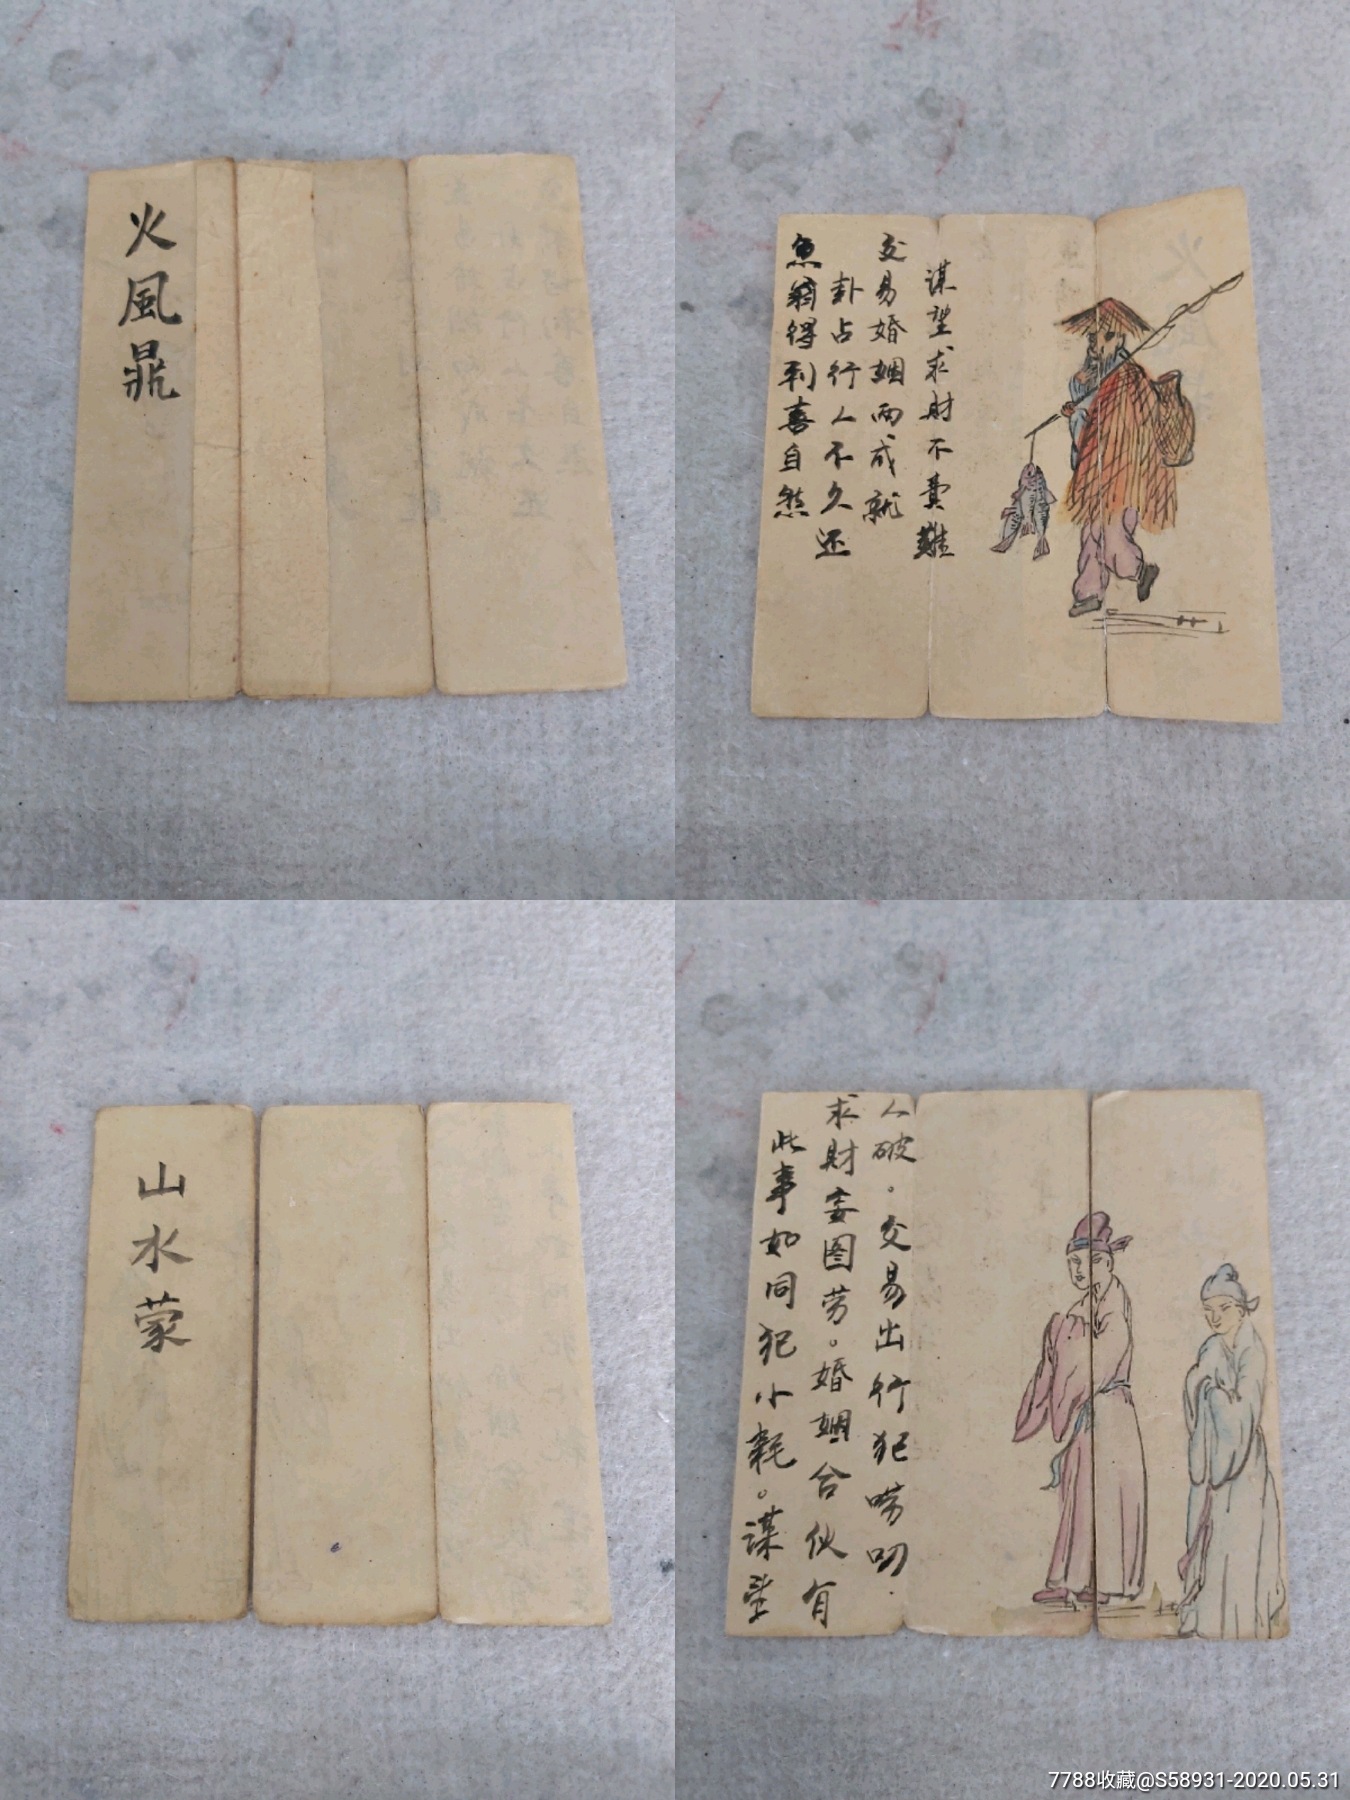 火風鼎
魚翁得利喜自然
卦占行人不久还
交易婚姻两成就
谋望求财不費難
山水蒙
此事如同犯小耗。谋望
求财妄图劳。婚姻合伙有
人破。交易出行犯唠叨.
7788收藏@S58931-2020.05.31